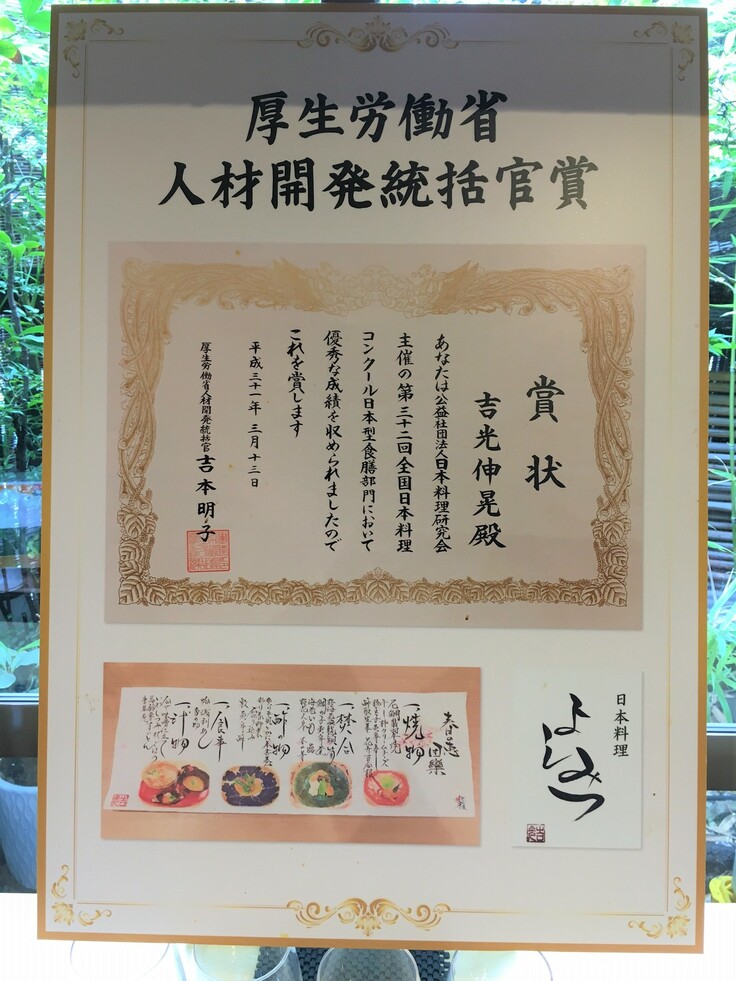 厚生労働省
人材開発統括官賞
賞状
吉光伸晃殿
あなたは公益社団法人日本料理研究会
主催の第三十二回全国日本料理
コンクール日本型食膳部門において
優秀な成績を収められましたので
これを賞します
平成三十一年 三月十三日
厚生労働省人材開発統括官 吉本明子
一、焼物
田樂
一、焚合
一、酢物
一、食事
一、汁物
日本料理
よしみつ